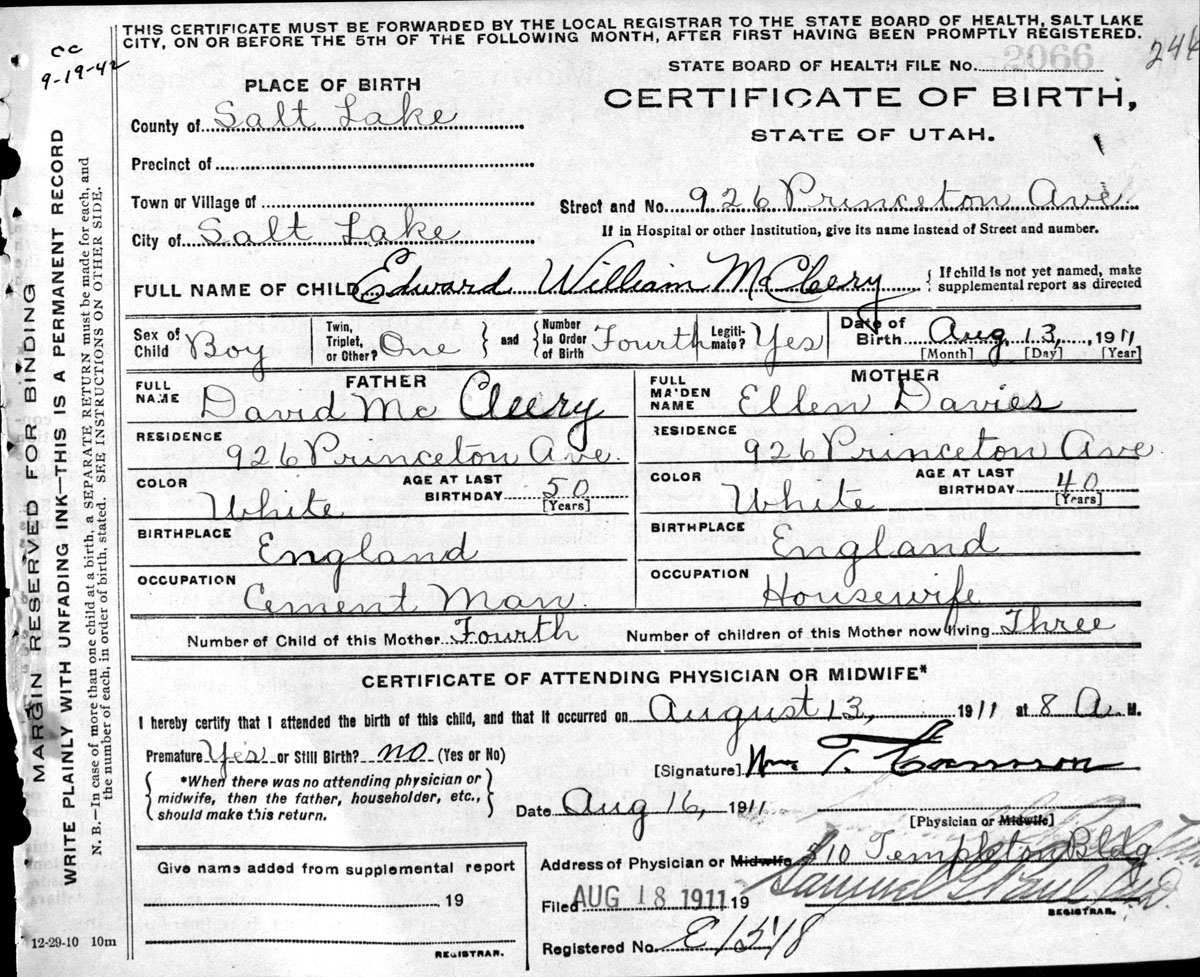 THIS CERTIFICATE MUST BE FORWARDED BY THE LOCAL REGISTRAR TO THE STATE BOARD OF HEALTH, SALT LAKE
CITY, ON OR BEFORE THE 5TH OF THE FOLLOWING MONTH, AFTER FIRST HAVING BEEN PROMPTLY REGISTERED.
cc
9-19-42
244
STATE BOARD OF HEALTH FILE No. 2066
PLACE OF BIRTH
CERTIFICATE OF BIRTH,
STATE OF UTAH.
County of Salt Lake
Precinct of
Town or Village of
Street and No. 926 Princeton Ave.
City of Salt Lake
If in Hospital or other Institution, give its name instead of Street and number.
FULL NAME OF CHILD Edward William McCleery { If child is not yet named, make supplemental report as directed
Sex of Child Boy
Twin, Triplet, or Other? One } and { Number in Order of Birth Fourth
Legitimate? Yes
Date of Birth Aug, 13, 1911
[Month] [Day] [Year]
FATHER
FULL NAME David McCleery
RESIDENCE 926 Princeton Ave.
COLOR White
AGE AT LAST BIRTHDAY 50 [Years]
BIRTHPLACE England
OCCUPATION Cement Man.
MOTHER
FULL MAIDEN NAME Ellen Davies
RESIDENCE 926 Princeton Ave
COLOR White
AGE AT LAST BIRTHDAY 40 [Years]
BIRTHPLACE England
OCCUPATION Housewife
Number of Child of this Mother Fourth
Number of children of this Mother now living Three
CERTIFICATE OF ATTENDING PHYSICIAN OR MIDWIFE*
I hereby certify that I attended the birth of this child, and that it occurred on August 13, 1911 at 8 A. M.
Premature Yes or Still Birth? no (Yes or No)
{ *When there was no attending physician or
midwife, then the father, householder, etc.,
should make this return. }
[Signature] Wm T. Cannon
Date Aug 16, 1911
[Physician or Midwife]
Address of Physician or Midwife 310 Templeton Bldg.
Give name added from supplemental report
19
REGISTRAR.
Filed AUG 18 1911 19
Samuel G. Paul M.D.
REGISTRAR.
Registered No. E1548
12-29-10 10m
MARGIN RESERVED FOR BINDING
WRITE PLAINLY WITH UNFADING INK—THIS IS A PERMANENT RECORD
N. B.—In case of more than one child at a birth, a SEPARATE RETURN must be made for each, and
the number of each, in order of birth, stated. SEE INSTRUCTIONS ON OTHER SIDE.